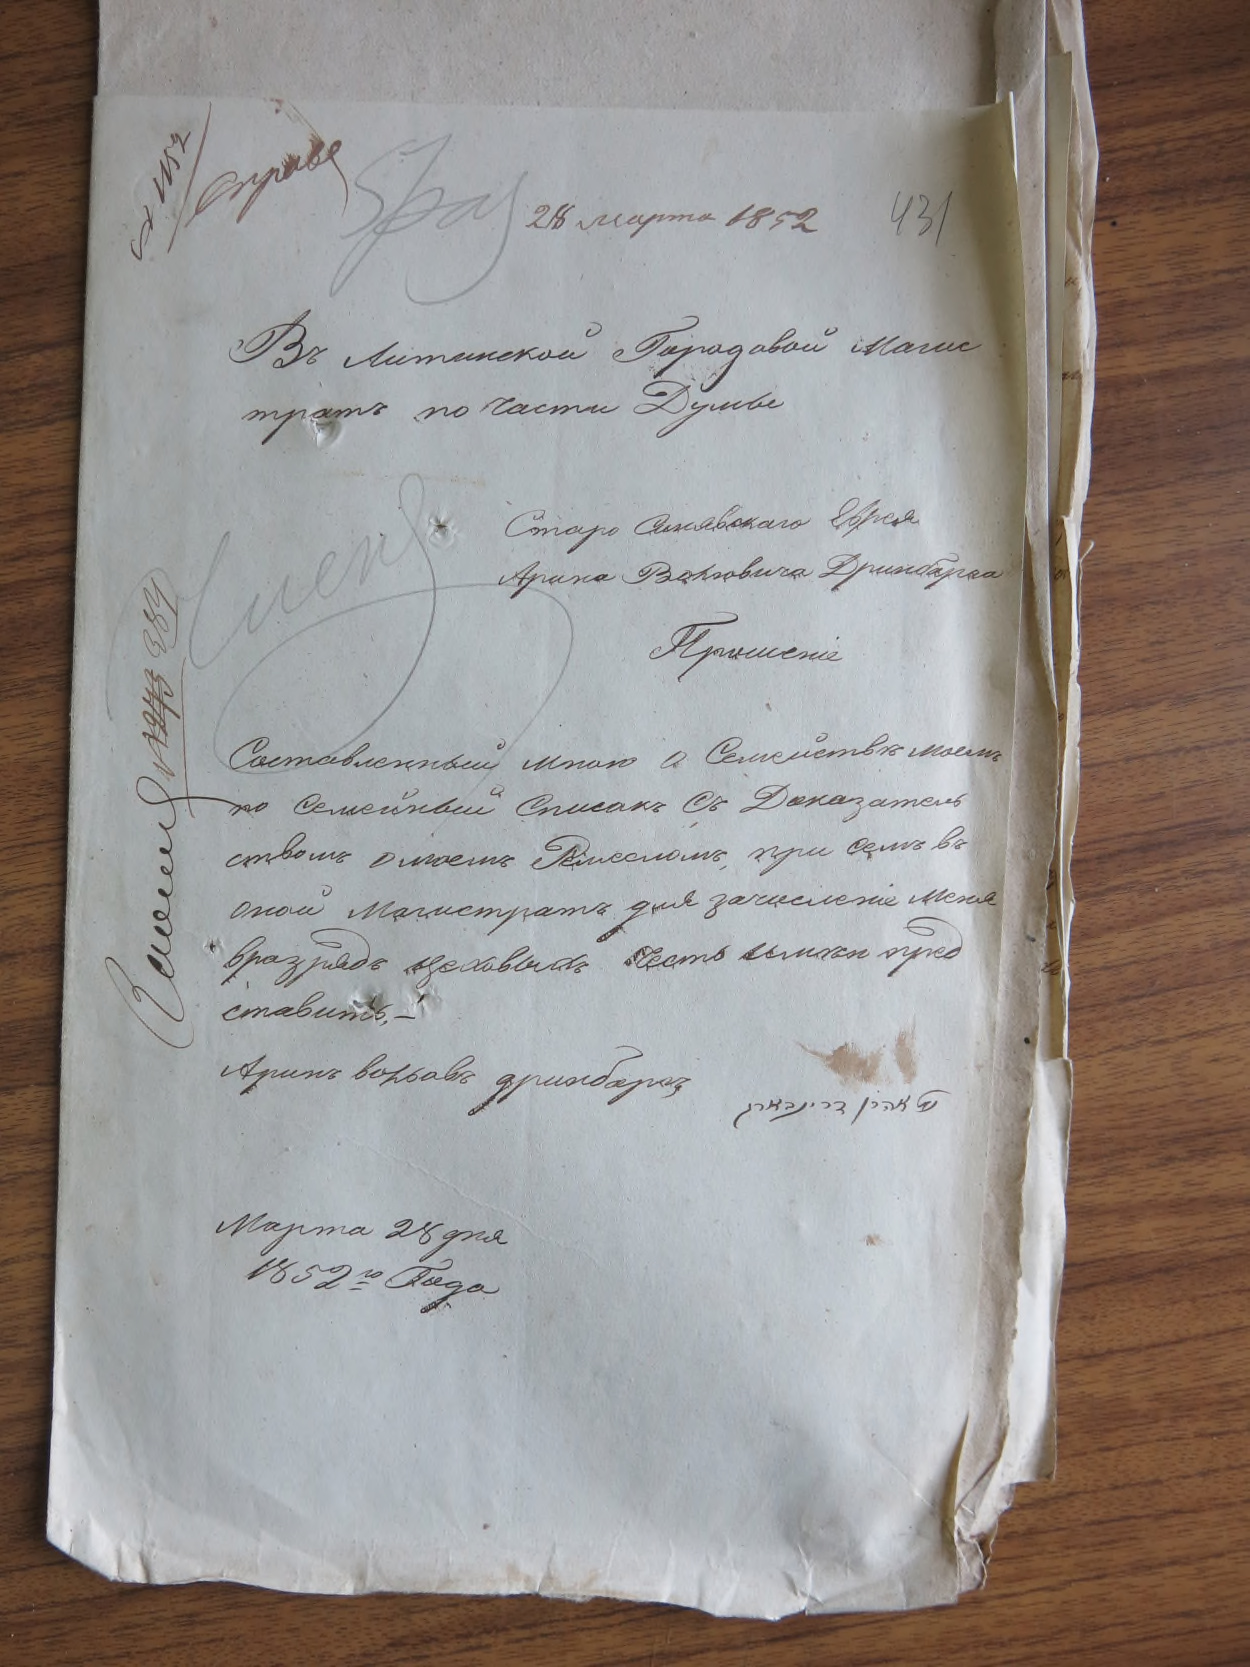 Справа
28 марта 1852
431
Въ Литинской Городовой Магис
тратъ по части Думы
Старо Синявскаго Еврея
Арина Вольковича Дринбарга
Прошеніе
Составленный мною о Семействѣ моем
по Семейный Списакъ Съ Доказатель
ствомъ о моемъ Ремеслом, при семъ въ
оной Магистратъ для зачисленіе меня
вразрядъ цеховыхъ Честь имѣю пред
ставить.–
Аринъ вольовъ дринбаргъ
אהרן דרינבארג
Марта 28 дня
1852го Года